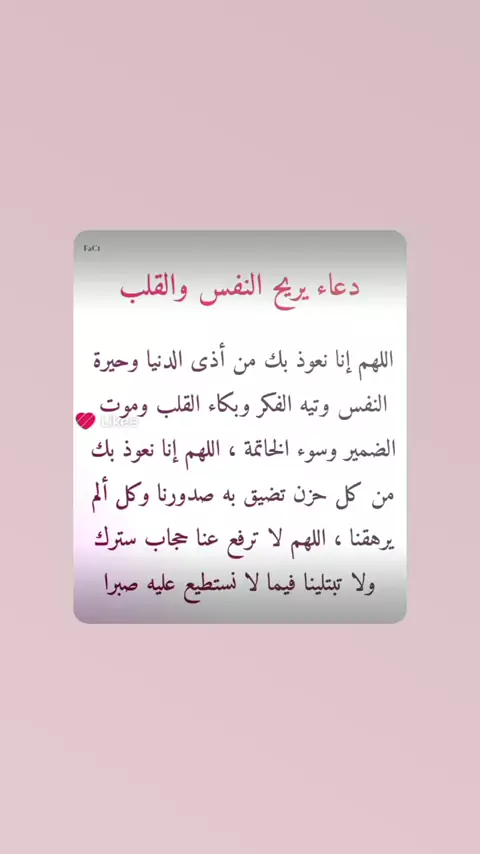 FaCt
دعاء يريح النفس والقلب
اللهم إنا نعوذ بك من أذى الدنيا وحيرة
النفس وتيه الفكر وبكاء القلب وموت
Likee
الضمير وسوء الخاتمة ، اللهم إنا نعوذ بك
من كل حزن تضيق به صدورنا وكل ألم
يرهقنا ، اللهم لا ترفع عنا حجاب سترك
ولا تبتلينا فيما لا نستطيع عليه صبرا